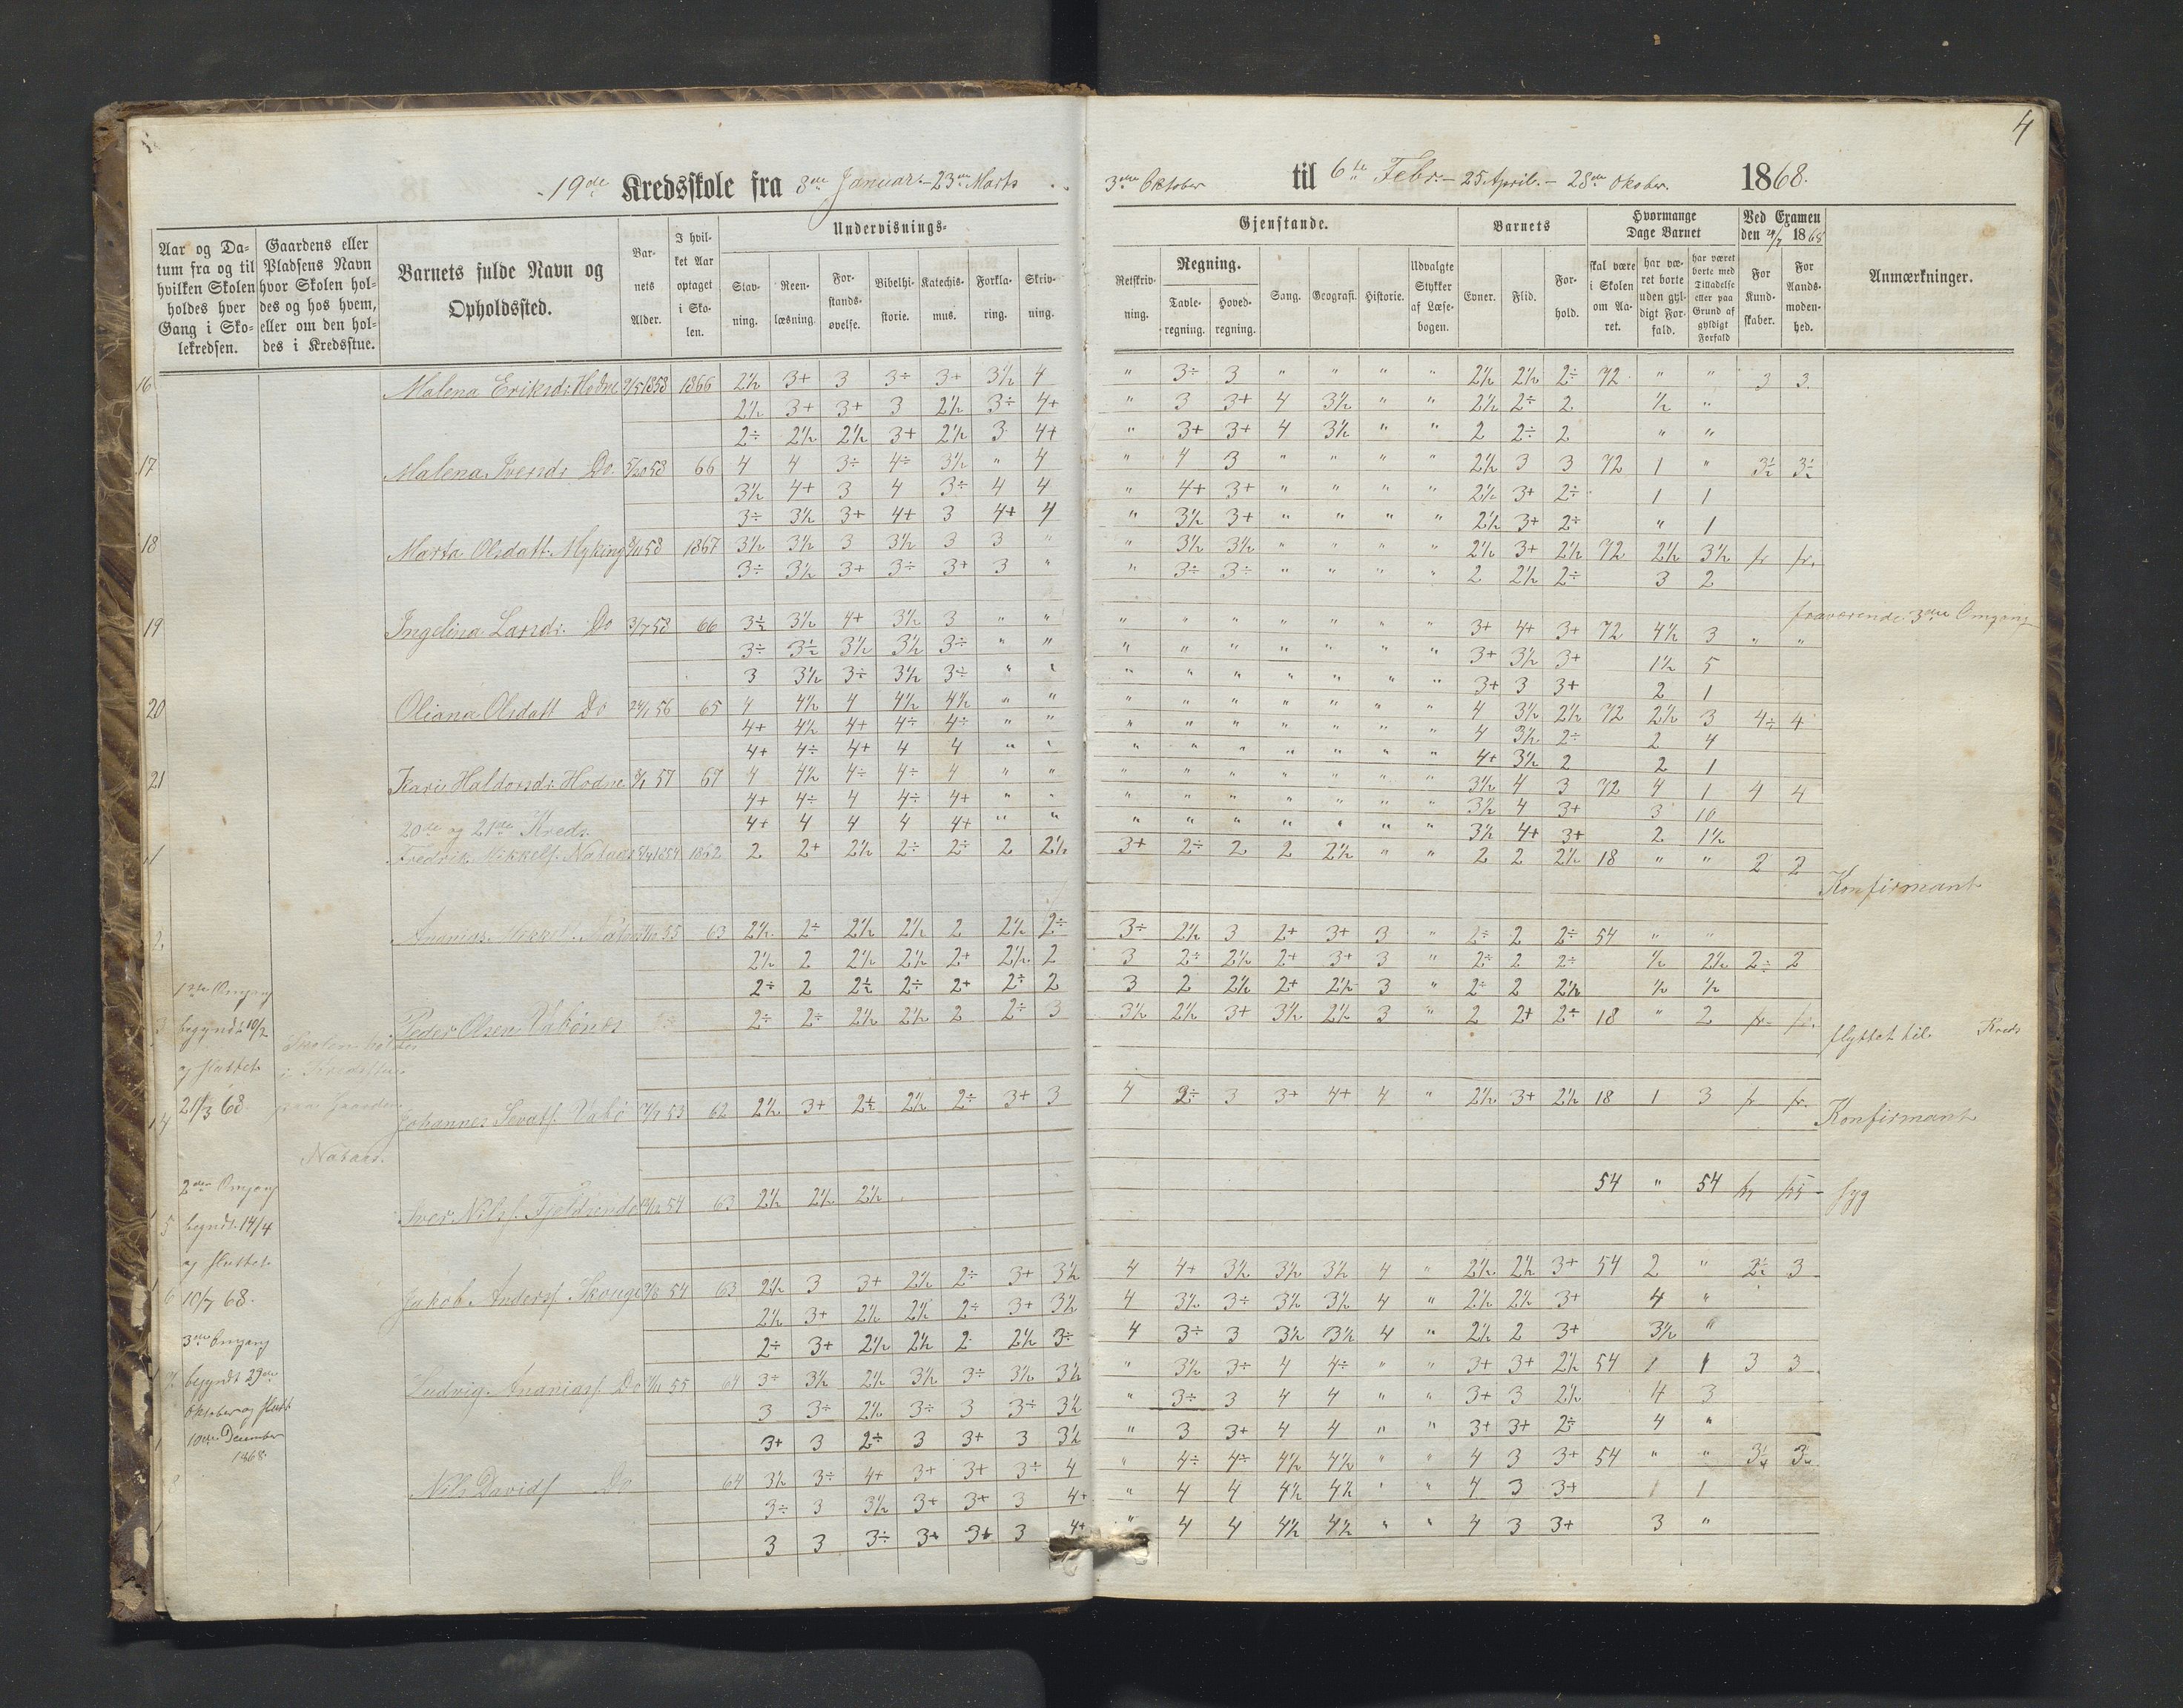 4
19de Kredsskole fra 8de Januar - 23de Marts
3die Oktober til 6te Febr. - 25 April. - 28de Oktober. 1868.
Aar og Da-
tum fra og til
hvilken Skolen
holdes hver
Gang i Sko-
lekredsen.
Gaardens eller
Pladsens Navn
hvor Skolen hol-
des og hos hvem,
eller om den hol-
des i Kredsstue.
Barnets fulde Navn og
Opholdssted.
Bar-
nets
Alder.
I hvil-
ket Aar
optaget
i Sko-
len.
Undervisnings-
Stav-
ning.
Reen-
læsning.
For-
stands-
øvelse.
Bibelhi-
storie.
Katechis-
mus.
Forkla-
ring.
Skriv-
ning.
Gjenstande.
Retskriv-
ning.
Regning.
Tavle-
regning.
Hoved-
regning.
Sang.
Geografi.
Historie.
Udvalgte
Stykker
af Læse-
bogen.
Barnets
Evner.
Flid.
For-
hold.
Hvormange
Dage Barnet
skal være
i Skolen
om Aa-
ret.
har væ-
ret borte
uden gyl-
digt For-
fald.
har været
borte med
Tilladelse
eller paa
Grund af
gyldigt
Forfald
Ved Examen
den 1868
For
Kund-
skaber.
For
Aands-
moden-
hed.
Anmærkninger.
16 Malena Eriksdr. Hodne 9/5 1858 1866 2½ 3+ 3 3÷ 3+ 3½ 4 " 3÷ 3 " " " " 2½ 2½ 2÷ 72 " " 3 3
2½ 3+ 3+ 3 2½ 3÷ 4+ " 3 3+ 4 3½ " " 2½ 2÷ 2 ½ "
2÷ 2½ 2½ 3+ 2½ 3 4+ " 3+ 3+ 4 3½ " " 2 2÷ 2 " "
17 Malena Iversdr. Do. 5/10 58 66 4 4 3÷ 4÷ 3½ " 4 " 4 3 " " " " 2½ 3 3 72 1 " 3½ 3½
3½ 4+ 3 4 3÷ 4 4 " 4+ 3+ " " " " 2½ 3+ 2÷ 1 1
3÷ 3½ 3+ 4+ 3 4+ 4 " 3½ 3+ " " " " 2½ 3+ 2÷ " 1
18 Marta Olsdatt. Myking 58 1867 3½ 3½ 3 3½ 3 3 " " 3½ 3½ " " " " 2½ 3+ 2½ 72 2½ 3½ fr fr.
3÷ 3½ 3+ 3÷ 3+ 3 " " 3÷ 3÷ " " " " 2 2½ 2÷ 3 2
fraværende 3die Omgang
19 Ingelina Larsdr. Do 3/7 58 66 3½ 3½ 4+ 3½ 3 " " " " " " " " " 3+ 4+ 3+ 72 4½ 3 " "
3÷ 3½ 3½ 3½ 3÷ " " " " " " " " " 3+ 3½ 3+ 1½ 5
3 3½ 3÷ 3½ 3÷ " " " " " " " " " 3+ 3 3+ 2 1
20 Oliana Olsdatt Do 24/1 56 65 4 4½ 4 4½ 4½ " " " " " " " " " 4 3½ 2½ 72 2½ 3 4÷ 4
4+ 4½ 4+ 4÷ 4÷ " " " " " " " " " 4 3½ 2÷ 2 4
4+ 4÷ 4+ 4 4 " " " " " " " " " 4+ 3½ 2 2 1
21 Kari Haldorsdr. Hodne 8/1 57 67 4 4½ 4÷ 4÷ 4 " " " " " " " " " 3½ 4 3 72 4 1 4 4
4+ 4÷ 4 4÷ 4+ " " " " " " " " " 3½ 4 3+ 3 10
20de og 21de Kreds. 4+ 4 4 4 4+ " " " " " " " " " 3½ 4+ 3+ 2 1½
1 Fredrik Mikkels. Nataas 1854 1862 2 2+ 2½ 2÷ 2÷ 2 2½ 3+ 2÷ 2 2 2½ " " 2 2 2½ 18 " " 2 2
Konfirmant
2 Ananias Mikkels. 55 63 2½ 2÷ 2½ 2½ 2 2½ 2÷ 3÷ 2½ 3 2+ 3+ 3 " 2÷ 2 2÷ 54 " "
2½ 2 2½ 2½ 2+ 2½ 2 3 2÷ 2½ 2+ 3+ 3 " 2÷ 2 2÷ ½ 2½ 2÷ 2
1ste Omgang 2÷ 2 2½ 2÷ 2+ 2÷ 2 3 2 2½ 2+ 2½ 3 " 2÷ 2 2½ ½ ½
3 begyndt 10/2 Peder Olsen Vabønes 2÷ 2÷ 2½ 2½ 2 2÷ 3 3½ 2½ 3+ 3½ 2½ 3 " 2 2+ 2÷ 18 " 2 fr. fr.
flyttet til Kreds
Skolen holdes
og sluttet i Kredsstue
21/3 68. paa Gaarden
4 Johannes Sevats. Vabø 53 62 2½ 3+ 2½ 2½ 2÷ 3+ 3 4 2÷ 3 3+ 4+ 4 " 2½ 3+ 2½ 18 1 3 fr fr.
Konfirmant
Nataas.
2den Omgang
5 begyndt 14/4 Iver Nilss. Fjeldsende 54 63 2½ 2½ 2½ 54 " 54 syg
og sluttet
6 10/7 68. Jakob Anderss Skouge 54 63 2½ 3 3+ 2½ 2÷ 3+ 3½ 4 4+ 3½ 3½ 3½ 4 " 2½ 2½ 3+ 54 2 " 2½ 3
2½ 3+ 2½ 2½ 2÷ 3+ 3½ 4 3½ 3÷ 3½ 3½ 4 " 2½ 2½ 3+ 4 "
3die Omgang 2÷ 3+ 2½ 2½ 2 2½ 3÷ 4 3÷ 3 3½ 3½ 4 " 2½ 2 3+ 3½ "
7 begyndt 29de Ludvig Ananiass. Do 55 64 3÷ 3½ 2½ 3½ 3÷ 3½ 3½ " 3½ 3÷ 4 4÷ " " 3+ 3+ 2½ 54 1 1 3 3
Oktober og sluttet 3 3÷ 2½ 3÷ 3 3÷ 3½ " 3÷ 3 4 4 " " 3+ 3 2½ 4 3
10de December 3+ 3 2÷ 3 3+ 3 3½ " 3 3+ 4 4 " " 3+ 3+ 2÷ 4 "
1868.
8 Nils Davids Do 64 3½ 3÷ 4+ 3+ 3+ 3÷ 4 " 4÷ 4÷ 4½ 4½ " " 4 3 3+ 54 " " 3½
3÷ 3 3½ 3+ 3+ 3 4+ " 4 4 4½ 4½ " " 4 3 3+ 1 1
3 3 3÷ 3+ 3+ 3 4+ " 4 4 4½ 4½ " " 4 3 3+ 3 "